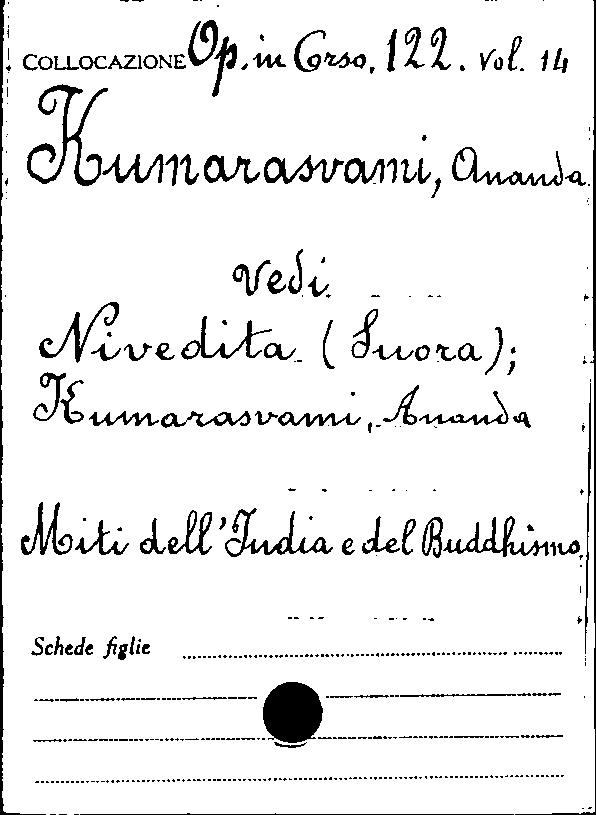 COLLOCAZIONE Op. in Corso. 122. vol. 14
Kumarasvami, Ananda
vedi
Nivedita (Suora);
Kumarasvami, Ananda
Miti dell'India e del Buddhismo
Schede figlie